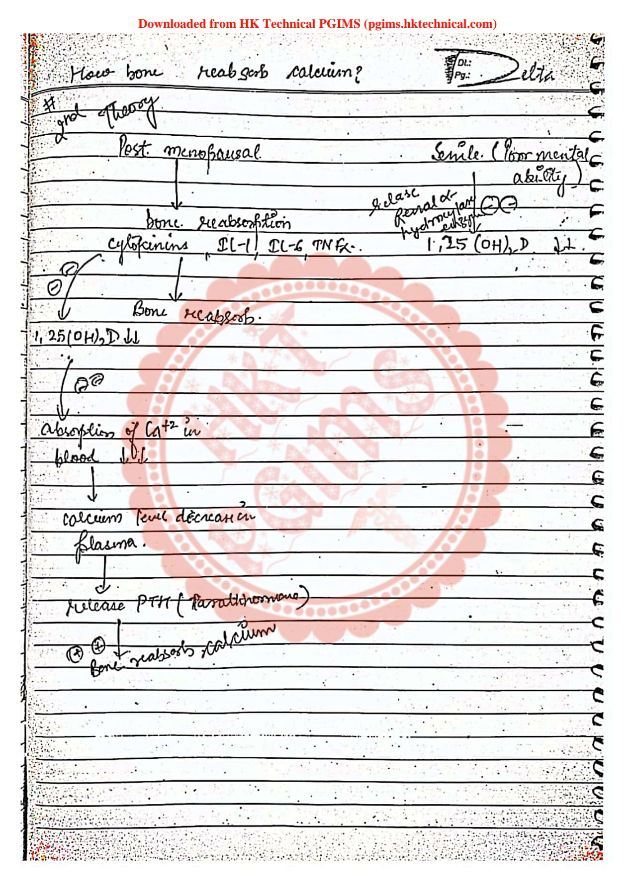 Downloaded from HK Technical PGIMS (pgims.hktechnical.com)
How bone reabsorb calcium?
DL:
Pg.:
Delta
# 2nd Theory
Post menopausal
Senile. (Poor mental
ability)
bone reabsorption
relase
hydroxylase
enzyme
cytokinins, IL-1, IL-6, TNFα.
1,25(OH)2D ↓↓
Bone reabsorb.
1,25(OH)2D ↓↓
absorption of Ca+2 in
blood ↓↓
calcium level decrease in
plasma.
release PTH (Parathhormone)
Bone reabsorb calcium
HKT
PGIMS